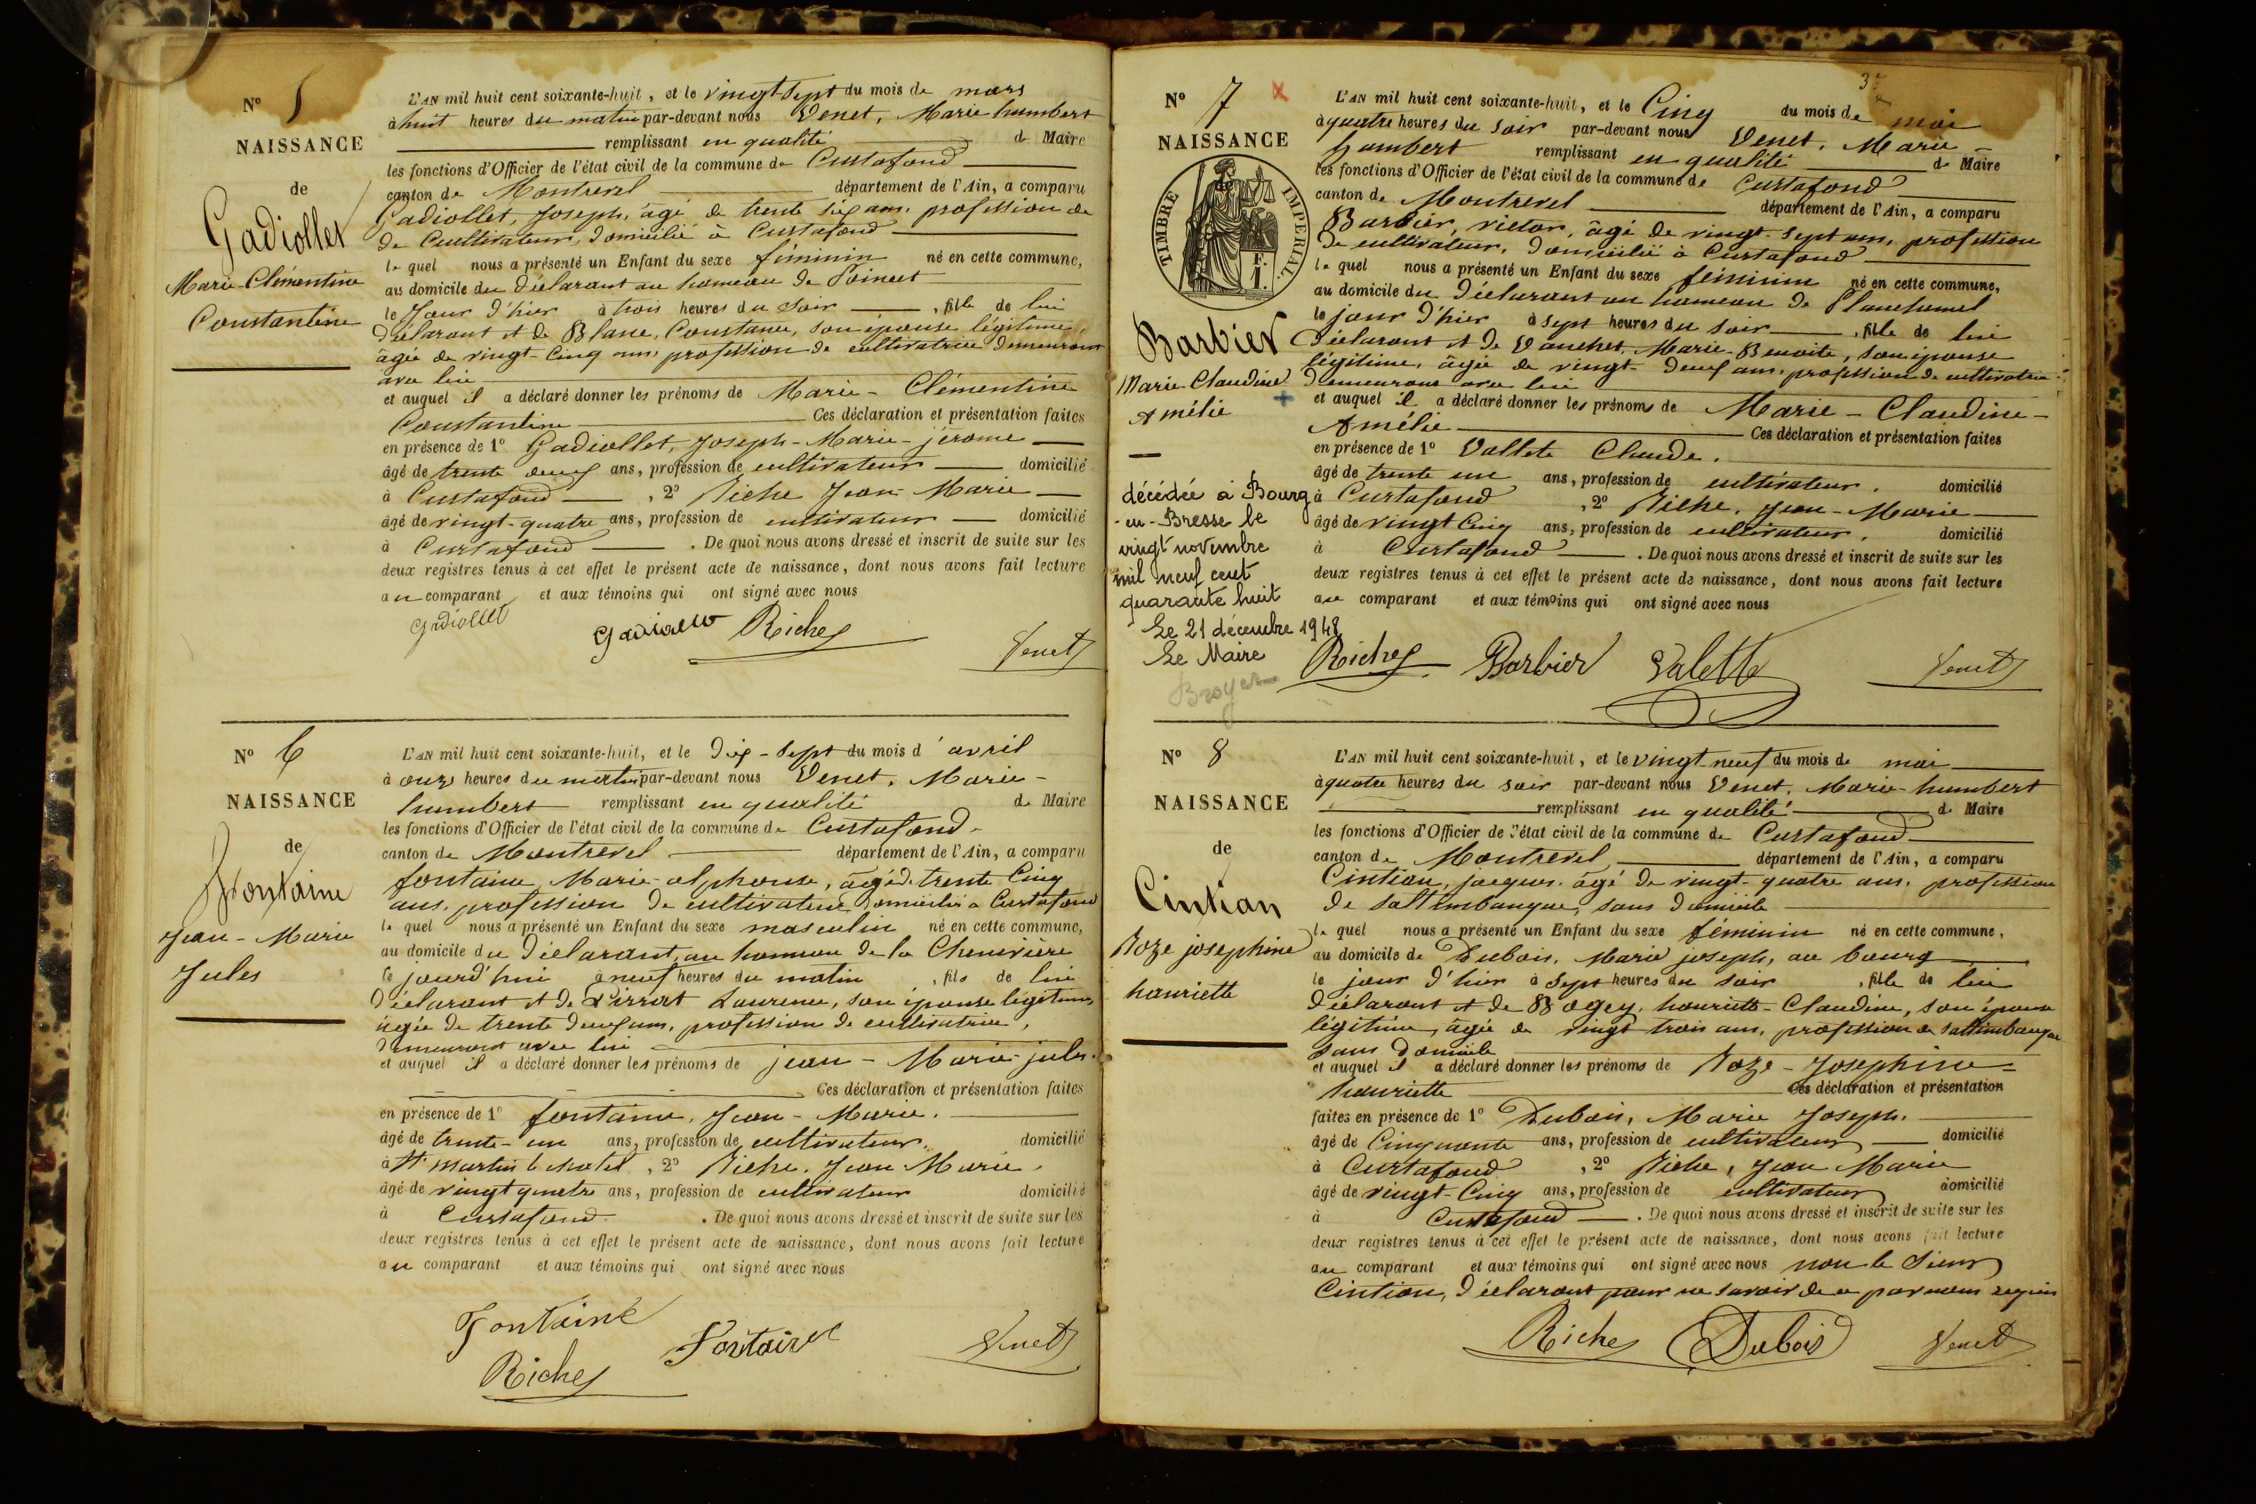 N° 5
NAISSANCE
de
Gadiollet
Marie-Clémentine
Constantine
L'AN mil huit cent soixante-huit, et le vingt sept du mois de mars
à huit heures du matin par-devant nous Venet, Marie humbert
remplissant en qualité de Maire
les fonctions d'Officier de l'état civil de la commune de Curtafond
canton de Montrevel département de l'Ain, a comparu
Gadiollet, Joseph, âgé de trente six ans, profession de
de Cultivateur, domicilié à Curtafond
le quel nous a présenté un Enfant du sexe féminin né en cette commune,
au domicile du déclarant au hameau de Poincet
le Jour d'hier à trois heures du soir, fille de lui
déclarant et de Blanc, Constance, son épouse légitime,
âgée de vingt-cinq ans, profession de cultivatrice demeurant
avec lui
et auquel il a déclaré donner les prénoms de Marie-Clémentine
Constantine Ces déclaration et présentation faites
en présence de 1° Gadiollet, Joseph-Marie-jérome
âgé de trente neuf ans, profession de cultivateur domicilié
à Curtafond, 2° Riche Jean Marie
âgé de vingt-quatre ans, profession de cultivateur domicilié
à Curtafond. De quoi nous avons dressé et inscrit de suite sur les
deux registres tenus à cet effet le présent acte de naissance, dont nous avons fait lecture
au comparant et aux témoins qui ont signé avec nous
Gadiollet Gadiollet Riche Venet
N° 6
NAISSANCE
de
Fontaine
Jean-Marie
Jules
L'AN mil huit cent soixante-huit, et le dix-sept du mois d'avril
à onze heures du matin par-devant nous Venet, Marie-
humbert remplissant en qualité de Maire
les fonctions d'Officier de l'état civil de la commune de Curtafond
canton de Montrevel département de l'Ain, a comparu
fontaine Marie-alphonse, âgé de trente cinq
ans, profession de cultivateur domicilié à Curtafond
le quel nous a présenté un Enfant du sexe masculin né en cette commune,
au domicile du déclarant, au hameau de la Chenevière
le jourd'hui à neuf heures du matin, fils de lui
déclarant et de Laurence, son épouse légitime,
âgée de trente deux ans, profession de cultivatrice,
demeurant avec lui
et auquel il a déclaré donner les prénoms de jean-Marie-jules.
Ces déclaration et présentation faites
en présence de 1° fontaine, Jean-Marie.
âgé de trente-un ans, profession de cultivateur, domicilié
à St martin le chatel, 2° Riche, Jean Marie,
âgé de vingt quatre ans, profession de cultivateur domicilié
à Curtafond. De quoi nous avons dressé et inscrit de suite sur les
deux registres tenus à cet effet le présent acte de naissance, dont nous avons fait lecture
au comparant et aux témoins qui ont signé avec nous
Fontaine Fontaine Venet
Riche
37
N° 7
NAISSANCE
de
TIMBRE IMPERIAL
F.
1.
Barbier
Marie-Claudine
Amélie
décédée à Bourg
-en-Bresse le
vingt novembre
mil neuf cent
quarante huit
Le 21 décembre 1948
Le Maire
Broyer
L'AN mil huit cent soixante-huit, et le Cinq du mois de mai
à quatre heures du soir par-devant nous Venet, Marie-
humbert remplissant en qualité de Maire
les fonctions d'Officier de l'état civil de la commune de Curtafond
canton de Montrevel département de l'Ain, a comparu
Barbier, victor, âgé de vingt-sept ans, profession
de cultivateur, domicilié à Curtafond
le quel nous a présenté un Enfant du sexe féminin né en cette commune,
au domicile du déclarant au hameau de Planchamel
le jour d'hier à sept heures du soir, fille de lui
déclarant et de Vauchet, Marie-Benoite, son épouse
légitime, âgée de vingt-deux ans, profession de cultivatrice
demeurant avec lui
et auquel il a déclaré donner les prénoms de Marie-Claudine-
Amélie Ces déclaration et présentation faites
en présence de 1° Vallete Claude.
âgé de trente un ans, profession de cultivateur. domicilié
à Curtafond, 2° Riche, Jean-Marie
âgé de vingt cinq ans, profession de cultivateur. domicilié
à Curtafond. De quoi nous avons dressé et inscrit de suite sur les
deux registres tenus à cet effet le présent acte de naissance, dont nous avons fait lecture
au comparant et aux témoins qui ont signé avec nous
Riche Barbier Valette Venet
N° 8
NAISSANCE
de
Cintian
Roze josephine
henriette
L'AN mil huit cent soixante-huit, et le vingt neuf du mois de mai
à quatre heures du soir par-devant nous Venet, Marie-humbert
remplissant en qualité de Maire
les fonctions d'Officier de l'état civil de la commune de Curtafond
canton de Montrevel département de l'Ain, a comparu
Cintian, jacques, âgé de vingt-quatre ans, profession
de saltimbanque, sans domicile
le quel nous a présenté un Enfant du sexe féminin né en cette commune,
au domicile de Dubois, Marie joseph, au bourg
le jour d'hier à sept heures du soir, fille de lui
déclarant et de Bogey, henriette-Claudine, son épouse
légitime, âgée de vingt trois ans, profession de saltimbanque
sans domicile
et auquel il a déclaré donner les prénoms de Roze-Josephine-
henriette Ces déclaration et présentation
faites en présence de 1° Dubois, Marie Joseph.
âgé de Cinquante ans, profession de cultivateur domicilié
à Curtafond, 2° Riche, Jean Marie
âgé de vingt-cinq ans, profession de cultivateur domicilié
à Curtafond. De quoi nous avons dressé et inscrit de suite sur les
deux registres tenus à cet effet le présent acte de naissance, dont nous avons fait lecture
au comparant et aux témoins qui ont signé avec nous non le Sieur
Cintian, déclarant pour ne savoir de ce par nous requis
Riche Dubois Venet